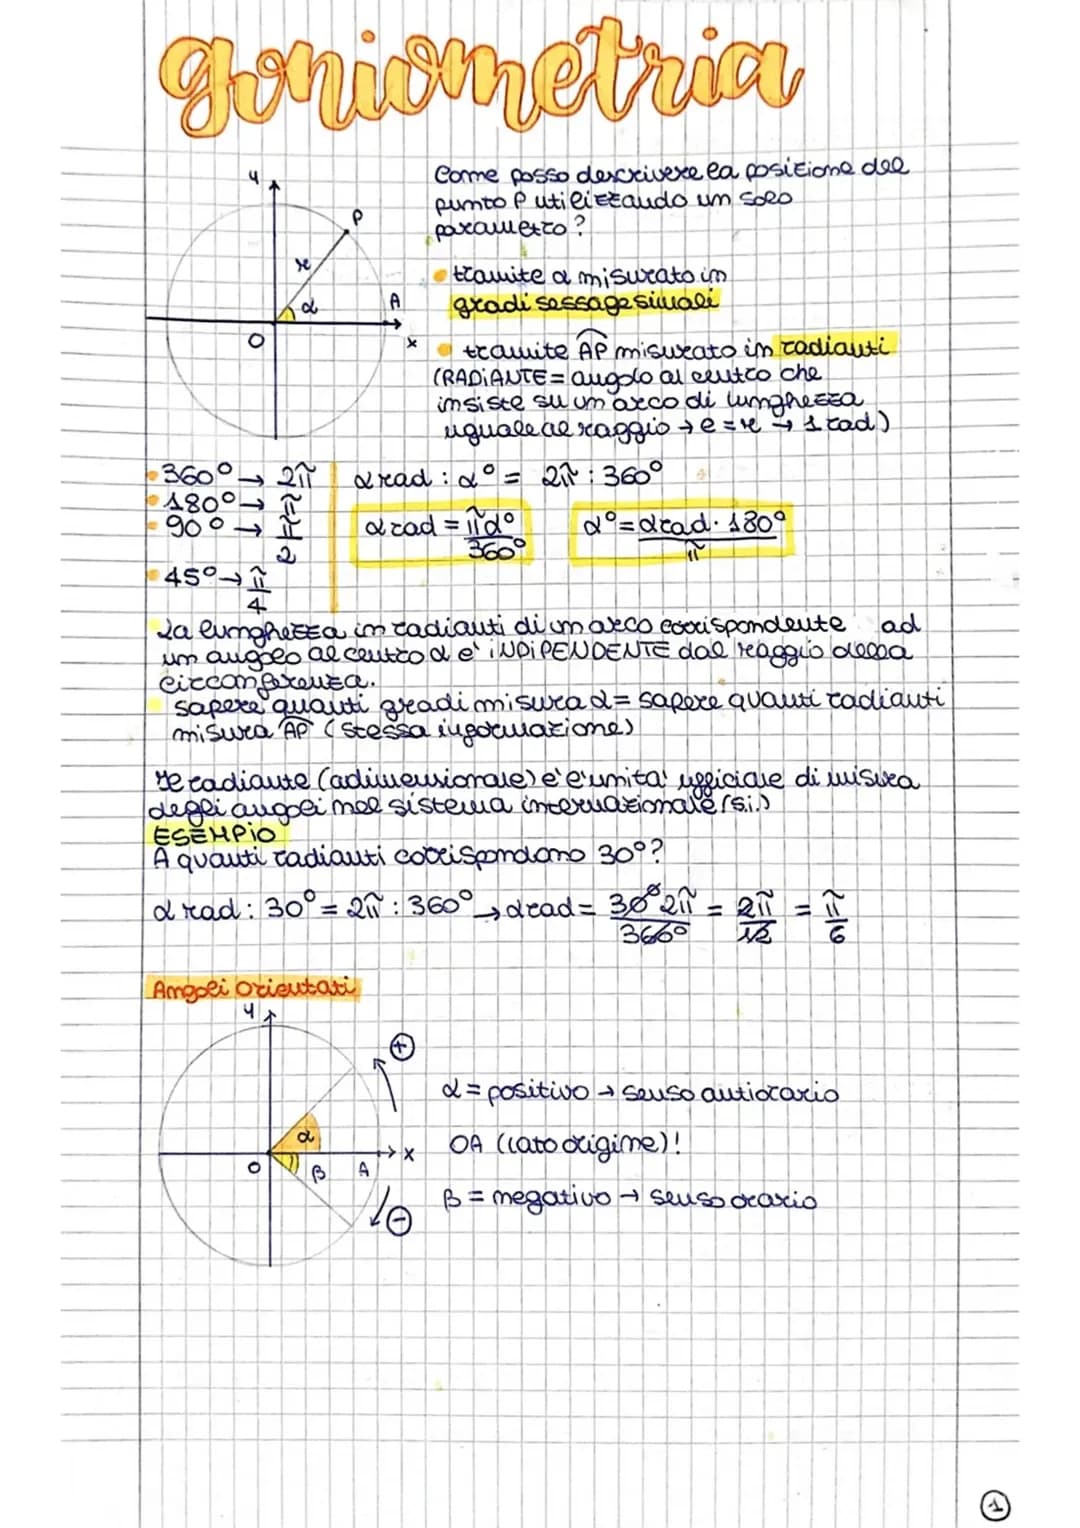 goniometria
Come posso descrivere la posizione del
punto P utilizzando un solo
parametro?
y
P
r
α
A
O
x
• tramite α misurato in
gradi sessagesimali
• tramite A͡P misurato in radianti
(RADiANTE = angolo al centro che
insiste su un arco di lunghezza
uguale al raggio → l = r → 1 rad)
• 360° → 2π
• 180° → π
• 90° → π/2
• 45° → π/4
α rad : α° = 2π : 360°
α rad = πα°/360°
α° = αrad · 180°/π
La lunghezza in radianti di un arco corrispondente ad
un angolo al centro α e' iNDiPENDENTE dal raggio della
circonferenza.
sapere quanti gradi misura α = sapere quanti radianti
misura A͡P (stessa informazione)
Il radiante (adimensionale) e' l'unita' ufficiale di misura
degli angoli nel sistema internazionale (s.i.)
ESEMPiO
A quanti radianti corrispondono 30°?
α rad : 30° = 2π : 360° → αrad = 30° 2π/360° = 2π/12 = π/6
Angoli orientati
y
+
α
x
O
β
A
-
α = positivo → senso antiorario
OA (lato origine)!
β = negativo → senso orario
1